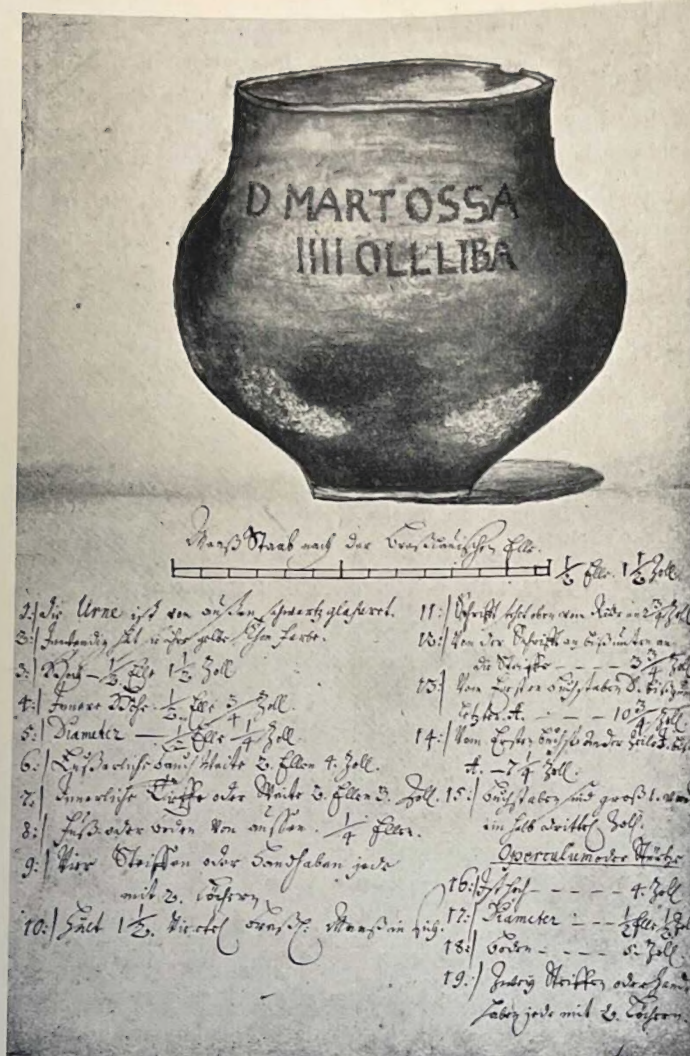 D MART OSSA
IIII OLL·LIBA
Maaß Staab nach der Breßlauischen Elle.
1/2 Elle. 1 1/2 Zoll.
1:| Die Urne ist von außen schwartz glasuret.
2:| Inwendig hat sie ihre gelbe Farbe.
3:| Hoch — 1/2 Elle 1 1/2 Zoll
4:| Innere Höhe. 1/2 Elle 3/4 Zoll.
5:| Diameter — 1/2 Elle 1/4 Zoll.
6:| Eußerliche Weite 2. Ellen 4. Zoll.
7:| Innerliche oder Weite 2. Ellen 3. Zoll.
8:| Fuß oder Boden von aussen. 1/4 Ellen.
9:| Vier Streiffen oder Handhaben jede
mit 2. Löchern
10:| Hält 1 1/2. Viertel Breßl: Maaß in sich.
11:| Schrifft oben vom 3/4 Zoll
12:| Von der Schrifft an biß unten an
die — — — 3 3/4 Zoll
13:| Vom Ersten Buchstaben D. biß zum
letzten A. — — 10 3/4 Zoll.
14:| Vom Ersten Buchst. ander Zeile I. biß
A. — 7 1/4 Zoll.
15:| Buchstaben sind groß 1. und
ein halb Zoll.
Operculum oder Stürtze
16:| Ist hoch — — — 4. Zoll
17:| Diameter — — 1/2 Elle 1/2 Zoll
18:| Boden — — 5. Zoll
19:| Zwey Streiffen oder Hand
haben jede mit 2. Löchern.